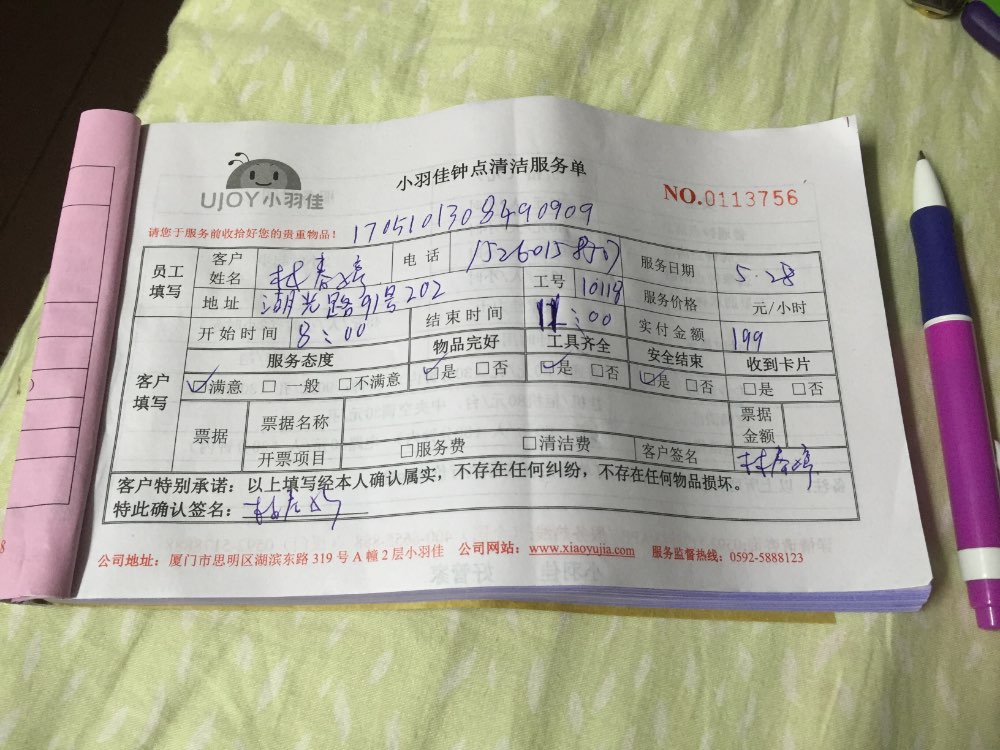 小羽佳钟点清洁服务单
UJOY小羽佳
NO.0113756
请您于服务前收拾好您的贵重物品！ 1705101308490909
员工填写 客户姓名 林春婷 电话 服务日期 5.28
地址 湖光路91号202 工号 10119 服务价格 元/小时
客户填写 开始时间 8:00 结束时间 11:00 实付金额 199
服务态度 物品完好 工具齐全 安全结束 收到卡片
☑满意 □一般 □不满意 ☑是 □否 ☑是 □否 ☑是 □否 □是 □否
票据 票据名称 票据金额
开票项目 □服务费 □清洁费 客户签名 林春婷
客户特别承诺：以上填写经本人确认属实，不存在任何纠纷，不存在任何物品损坏。
特此确认签名：
公司地址：厦门市思明区湖滨东路 319 号 A 幢 2 层小羽佳 公司网站：www.xiaoyujia.com 服务监督热线：0592-5888123